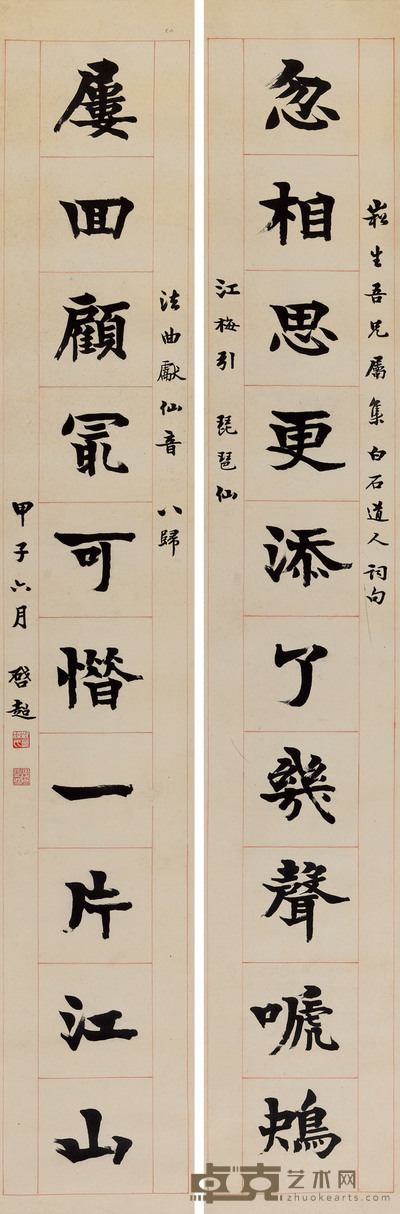 崧生吾兄屬集白石道人詞句
忽相思更添了幾聲嗁鴃
江梅引 琵琶仙
法曲獻仙音 八歸
屢囬顧冣可惜一片江山
甲子六月 啓超
卓克艺术网
zhuokearts.com